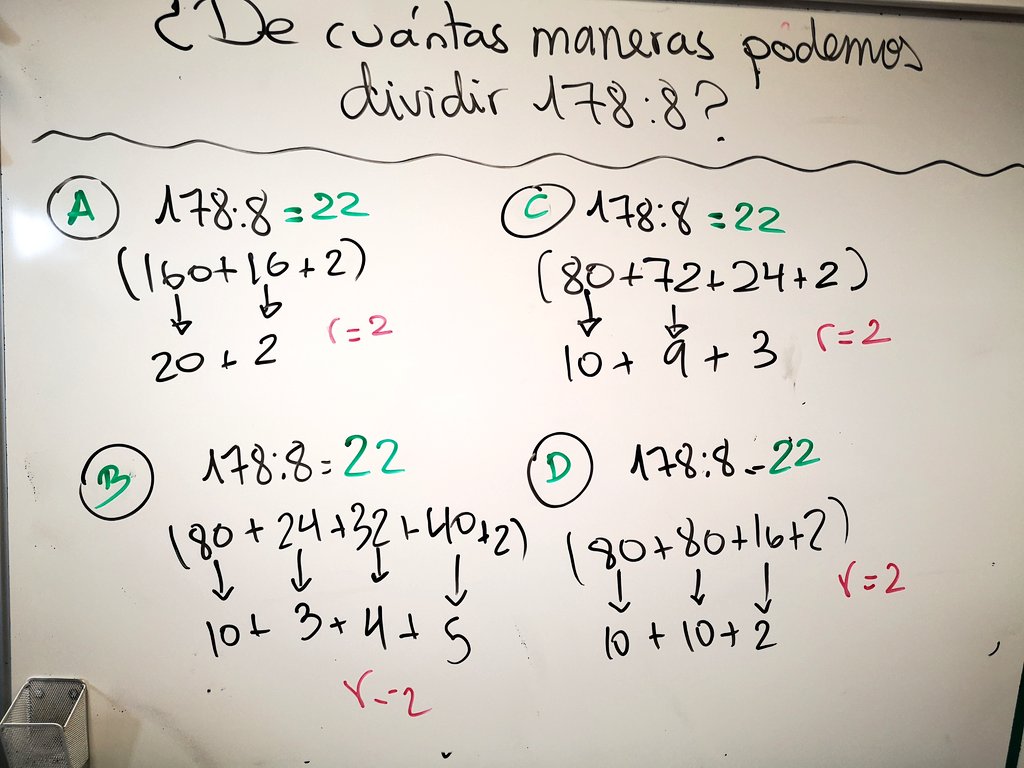 ¿De cuántas maneras podemos
dividir 178:8?
A 178:8 = 22
(160+16+2)
20 + 2 r=2
B 178:8 = 22
(80 + 24 + 32 + 40 + 2)
10 + 3 + 4 + 5
r=2
C 178:8 = 22
(80+72+24+2)
10 + 9 + 3 r=2
D 178:8 = 22
(80+80+16+2)
r=2
10 + 10 + 2